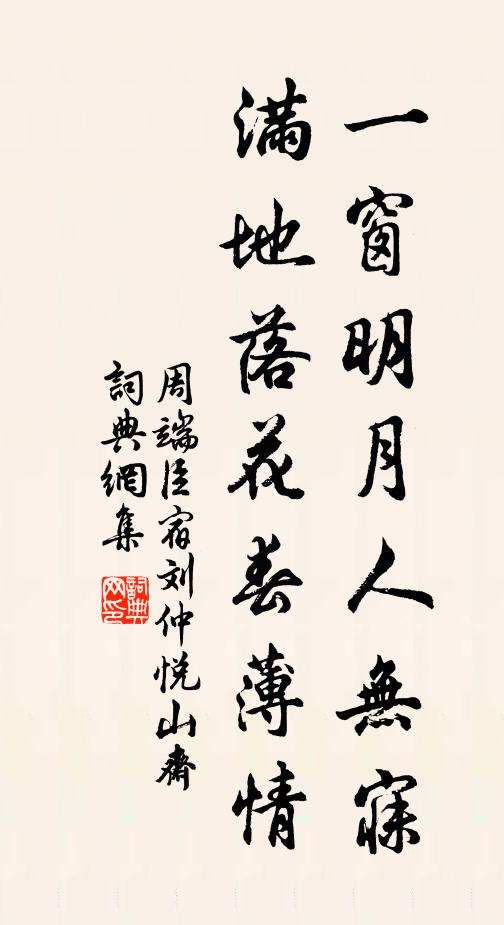 一窗明月人無寐
滿地落花春薄情
周端臣宿刘仲悦山齋
詞典網集
詞典網印